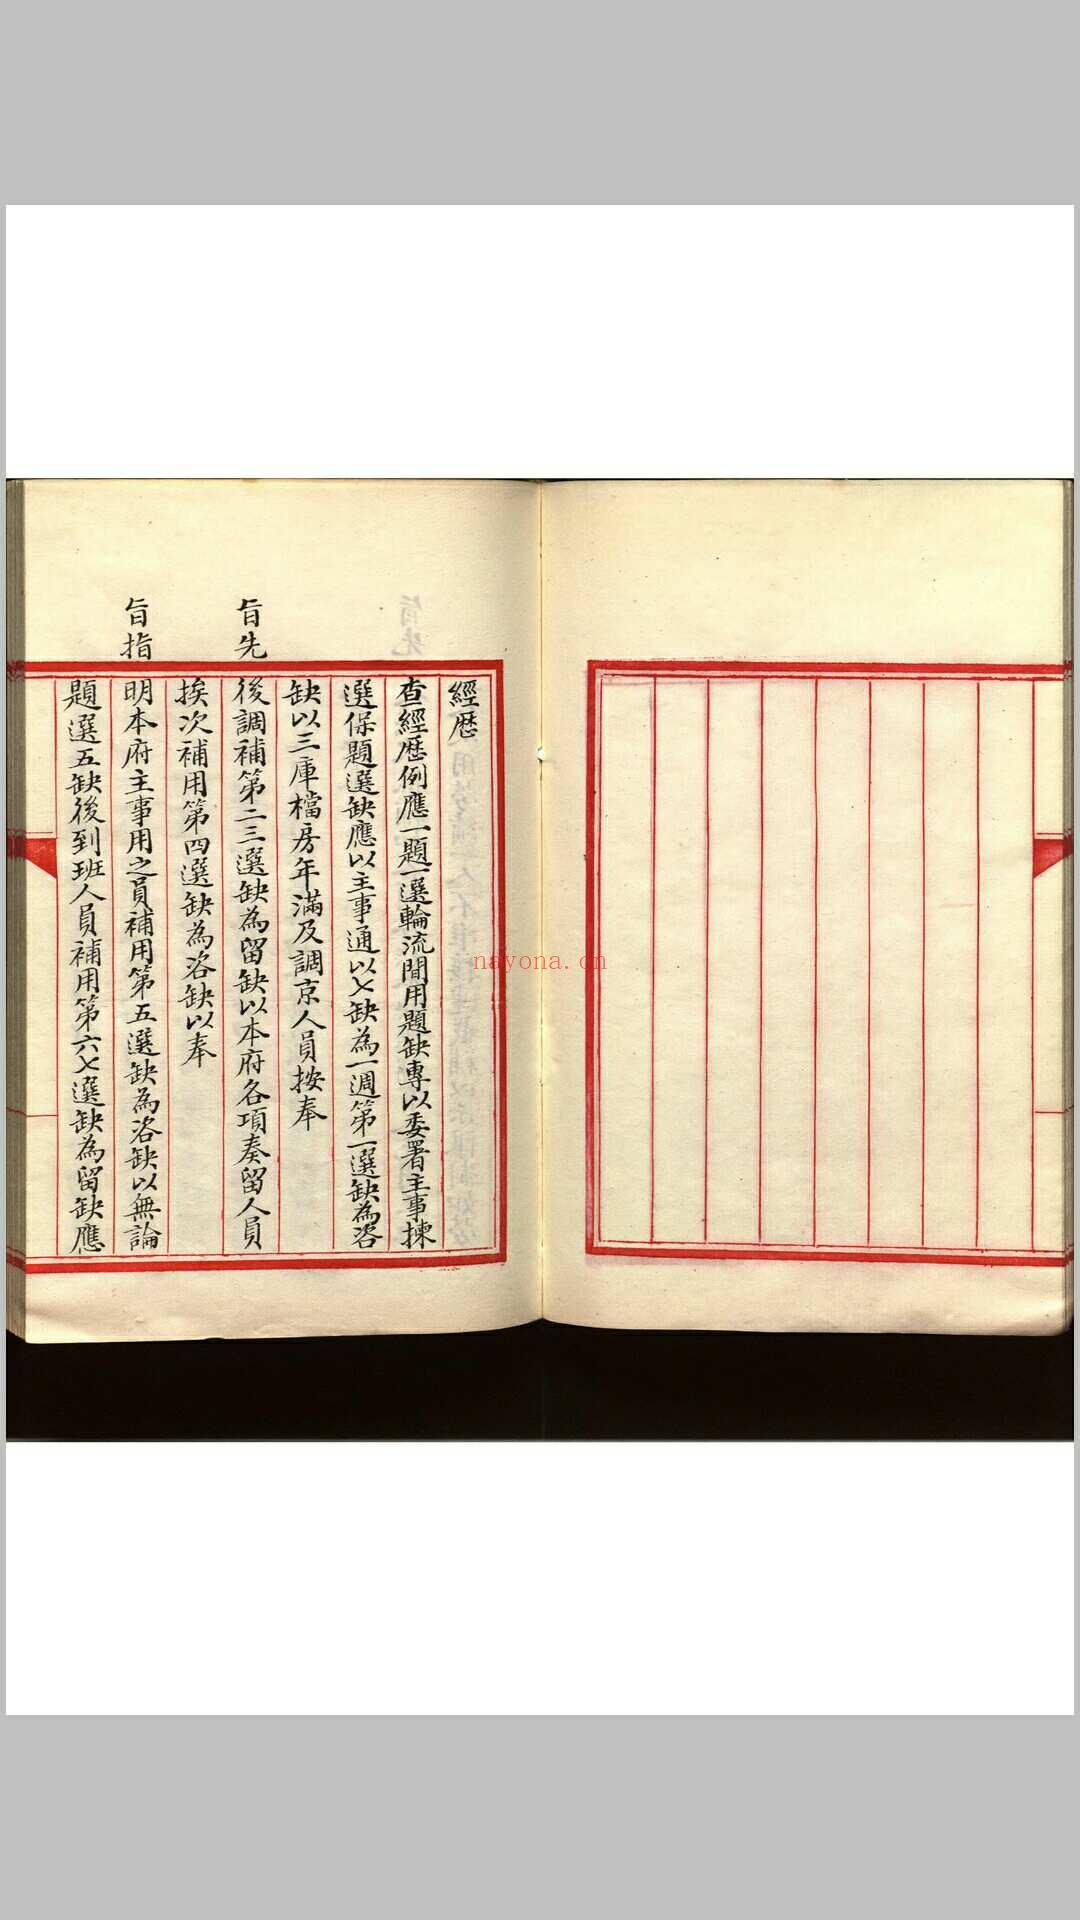 經歷
查經歷例應一題一選輪流間用題缺專以委署主事揀
選保題選缺應以主事通以七缺為一週第一選缺為咨
缺以三庫檔房年滿及調京人員按奉
旨先後調補第二三選缺為留缺以本府各項奏留人員
挨次補用第四選缺為咨缺以奉
旨指明本府主事用之員補用第五選缺為咨缺以無論
題選五缺後到班人員補用第六七選缺為留缺應
nayona.cn